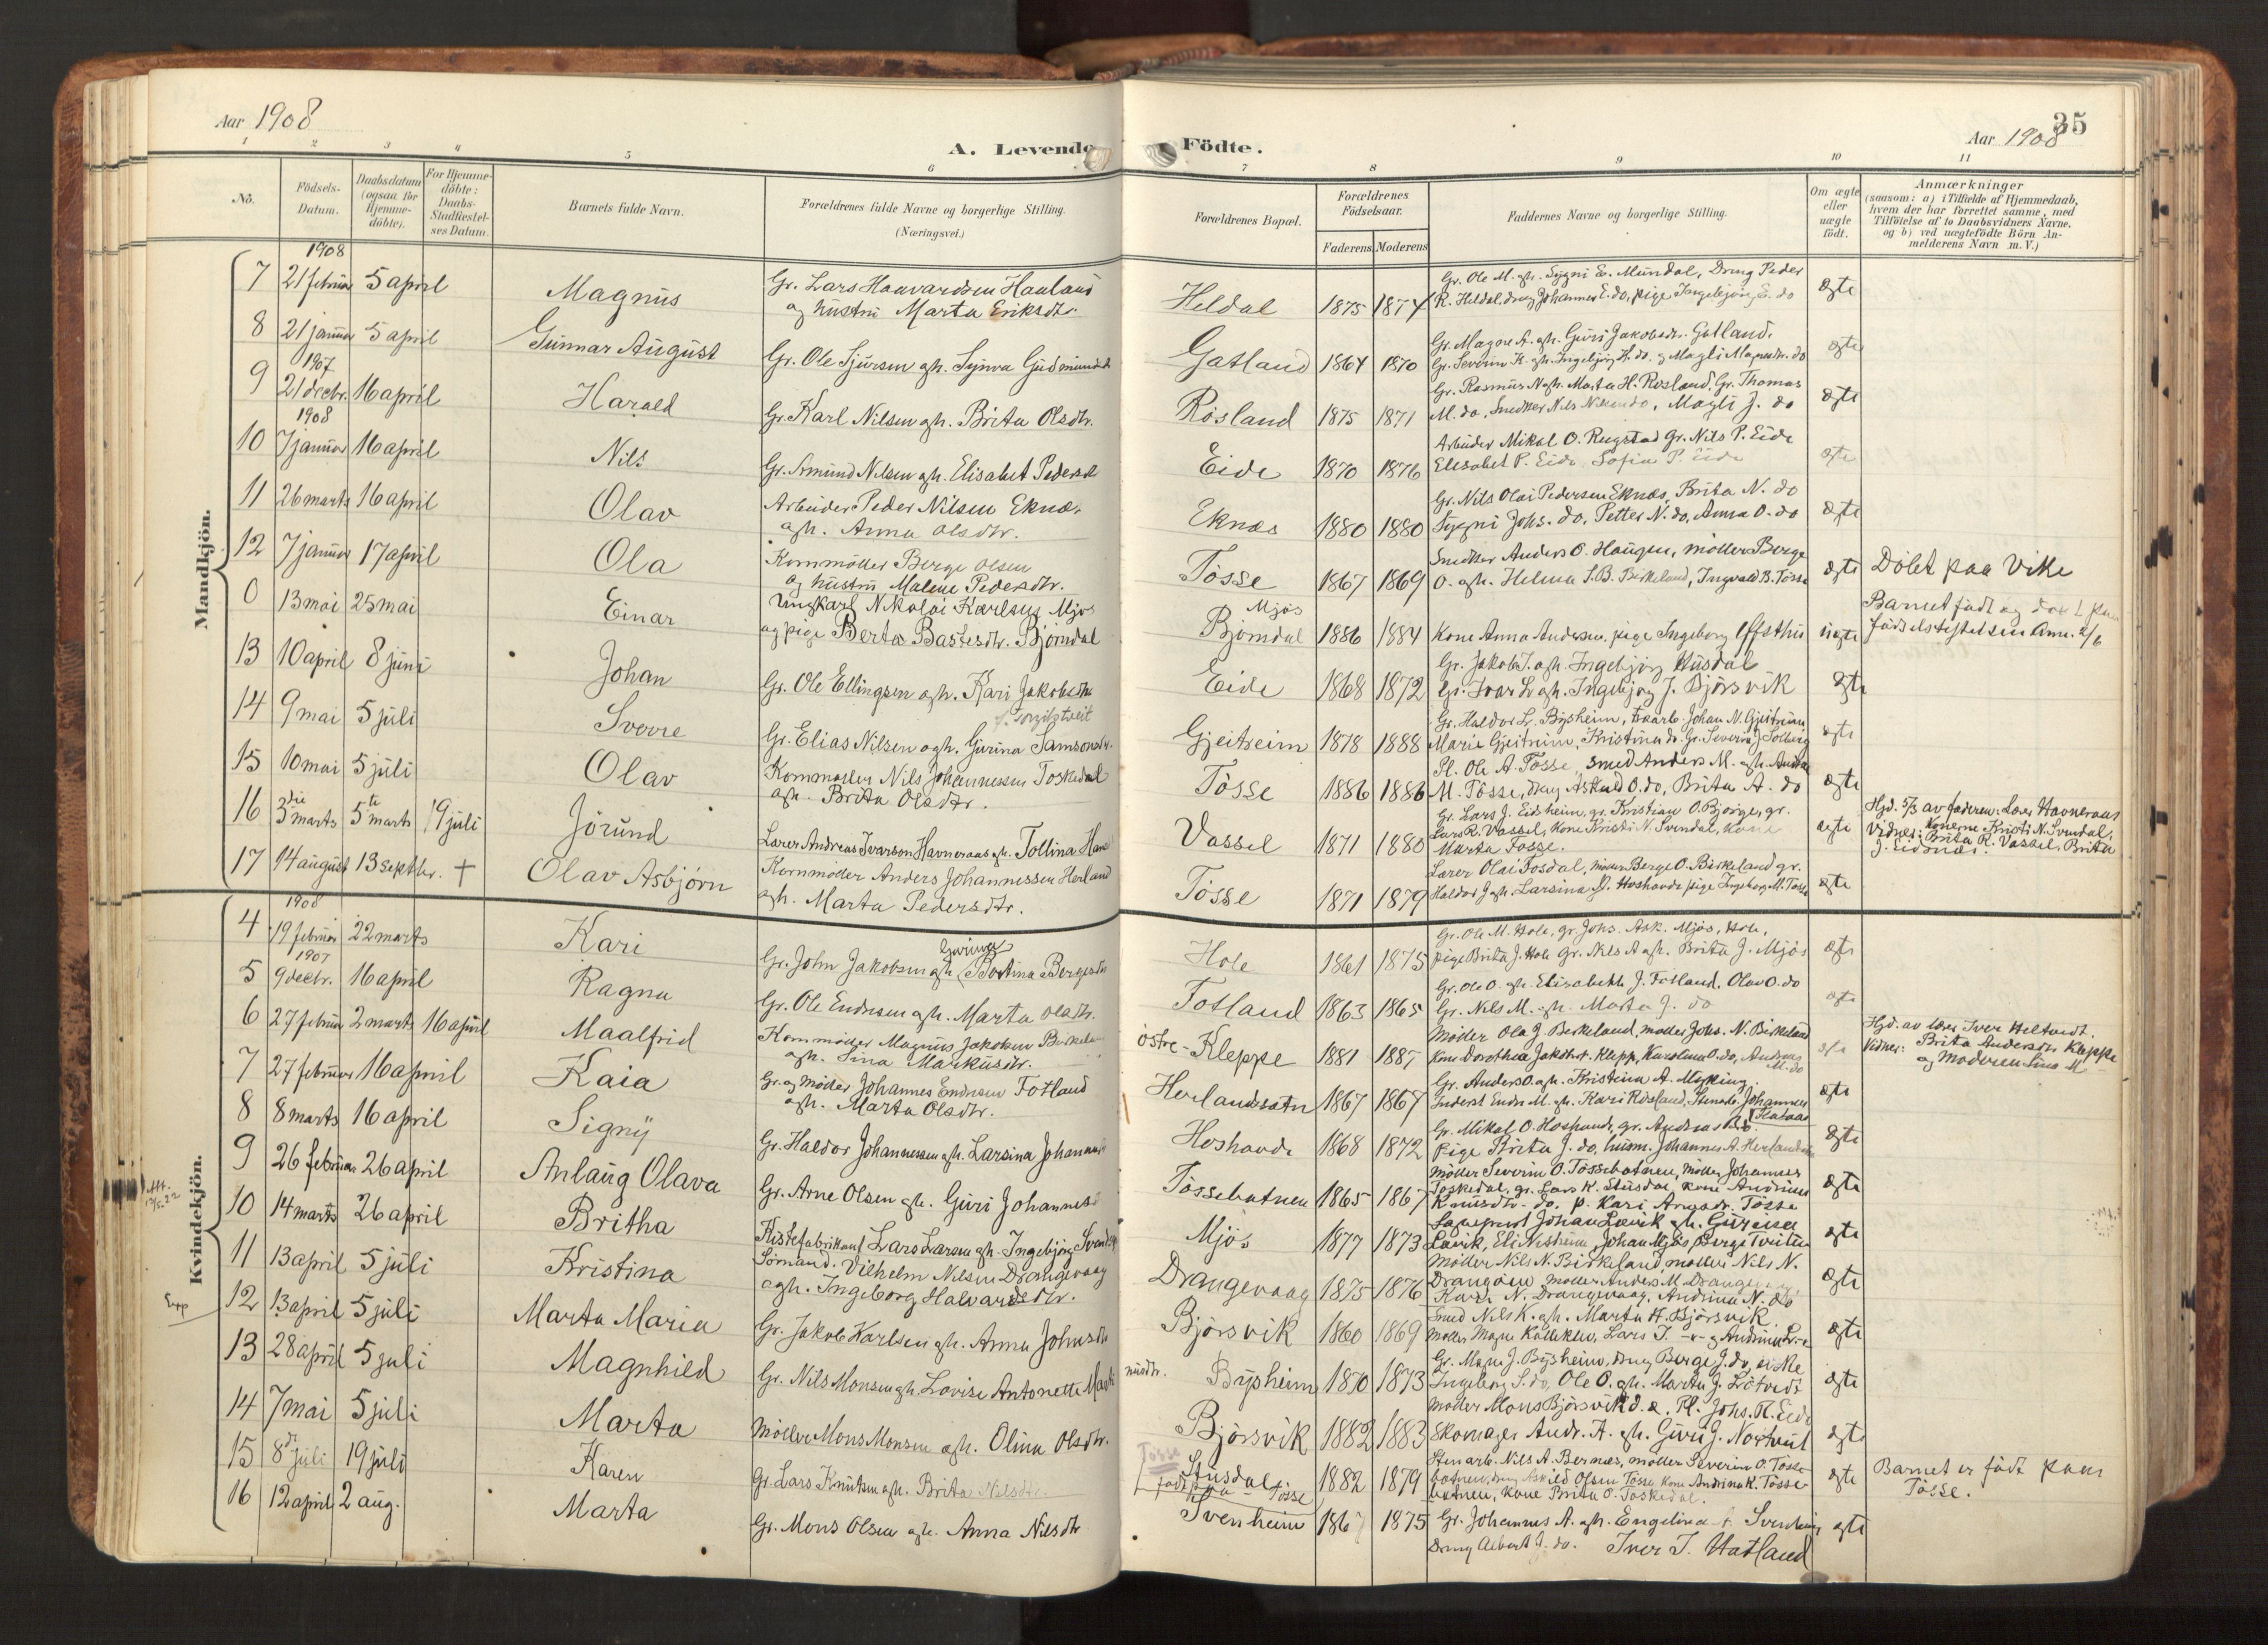 Aar 1908
A. Levende Födte.
Aar 1908
35
1 2 3 4 5 6 7 8 9 10 11
No.
Födsels-Datum.
Daabsdatum (ogsaa for Hjemme-döbte).
For Hjemme-döbte: Daabs-Stadfæstel-ses Datum.
Barnets fulde Navn.
Forældrenes fulde Navne og borgerlige Stilling.
(Næringsvei.)
Forældrenes Bopæl.
Forældrenes Födselsaar.
Faderens Moderens
Faddernes Navne og borgerlige Stilling.
Om ægte eller uægte født.
Anmærkninger
(saasom: a) i Tilfælde af Hjemmedaab,
hvem der har forrettet samme, med
Tilföielse af to Daabsvidners Navne.
og b) ved uægtefödte Börn An-
melderens Navn m. V.)
Mandkjön.
1908
7 21 februar 5 april Magnus Gr. Lars Haavardsen Hauland
og hustru Marta Eriksdtr. Heldal 1875 1874 Gr. Ole M. ogh. Sygni E. Mundal, Dreng Peder
R. Heldal, dreng Johannes E. do, pige Ingebjörg E. do ægte
8 21 januar 5 april Gunnar August Gr. Ole Sjursen ogh. Synva Gudmundsdtr Gatland 1864 1870 Gr. Magne A. ogh. Guri Jakobsdtr. Gatland.
Gr. Severin K. ogh. Ingebjörg H. do. og Magli Magnesdtr. do ægte
1907
9 21 decbr. 16 april Harald Gr. Karl Nilsen ogh. Brita Olsdtr. Rösland 1875 1871 Gr. Rasmus N ogh. Marta H. Rosland, Gr. Thomas
M. do, Snedker Nils Nilsen do, Magli J. do ægte
1908
10 7 januar 16 april Nils Gr. Amund Nilsen ogh. Elisabet Pedersdtr Eide 1870 1876 Arbeider Mikal O. Rengstad Gr. Nils P. Eide
Elisabet P. Eide Sofia P. Eide ægte
11 26 marts 16 april Olav Arbeider Peder Nilsen Eknæs
ogh. Anna Olsdtr. Eknæs 1880 1880 Gr. Nils Olai Pedersen Eknæs, Brita N. do
Sygni Johs. do, Petter N. do, Anna O. do ægte
12 7 januar 17 april Ola Kornmöller Berge Olsen
og hustru Malene Pedersdtr. Tösse 1867 1869 Snedker Anders O. Haugen, möller Berge
O. ogh. Helena S. B. Birkeland, Ingvald B. Tösse ægte Döbt paa Vike
0 13 mai 25 mai Einar Ungkarl Nikolai Karlsen Mjös
og pige Berta Bastesdtr. Björndal Mjös
Björndal 1886 1884 Kone Anna Andersen, pige Ingeborg Offsthus uægte Barnet født og døbt paa
fødselsstiftelsen Anm. 2/6
13 10 april 8 juni Johan Gr. Ole Ellingsen ogh. Kari Jakobsdtr Eide 1868 1872 Gr. Jakob J. ogh. Ingebjörg Husdal
Gr. Ivar L ogh. Ingebjörg J. Björsvik ægte
14 9 mai 5 juli Sverre Gr. Elias Nilsen ogh. Gurina Samsonsdtr. Gjeitreim 1878 1888 Gr. Haldor L. Bysheim, Johan N. Gjeitreim
Marie Gjeitreim, Kristina do Gr. Severin J. Solberg ægte
15 10 mai 5 juli Olav Kornmöller Nils Johannessen Toskedal
ogh. Brita Olsdtr. Tösse 1886 1886 Pl. Ole A. Tösse, smed Anders M. ogh. Anna
M. Tösse, dreng Askild O. do, Brita A. do ægte
16 3die marts 5te marts 19 juli Jörund Lærer Andreas Ivarson Havneraas ogh. Tollina Hans Vassel 1871 1880 Gr. Lars J. Eidsheim, gr. Kristian O. Bjorge, gr.
Lars R. Vassel, kone Kristi N. Svendal, kone
Marta Fosse. ægte Hjd. 5/3 av faderen: Lærer Havneraas
Vidner: Konerne Kristi N. Svendal,
Brita R. Vassel, Brita
J. Eidsnæs.
17 14 august 13 septbr. † Olav Asbjörn Kornmöller Anders Johannessen Herland
ogh. Marta Pedersdtr. Tösse 1871 1879 Lærer Olai Fosdal, möller Berge O. Birkeland gr.
Haldor J ogh. Larsina M. Hoshovde pige Ingeborg M. Tösse ægte
Kvindekjön.
1908
4 19 februar 22 marts Kari Gr. John Jakobsen ogh Bertina Bergesdtr Hole 1861 1875 Gr. Ole M. Hole, gr. Johs. Ask. Mjös, Hole,
pige Brita J. Hole gr. Nils A ogh. Brita J. Mjös ægte
1907
5 9 decbr. 16 april Ragna Gr. Ole Endresen ogh. Marta Olsdtr. Fotland 1863 1865 Gr. Ole O. ogh. Elisabeth J. Fotland, Olav O. do
Gr. Nils M. ogh. Marta J. do ægte
6 27 februar 2 marts 16 april Maalfrid Kornmöller Magnus Jakobsen Birkeland
ogh. Lina Markusdtr. östre-Kleppe 1881 1887 Möller Ola J. Birkeland, möller Johs. N. Birkeland
Kone Dorothea Jakobsdtr. Klepp, Karolina O. do, Andreas
M. do ægte Hjd. av lærer Iver Heltvedt.
Vidner: Brita Anderson Kleppe
og Moderen Lina M
7 27 februar 16 april Kaia Gr. og Möller Johannes Endresen Fotland
ogh. Marta Olsdtr. Herlandsvatn 1867 1867 Gr. Anders O. ogh. Kristina A. Mösking.
Inderst Endre M. ogh. Kari Rösland, Stenarb. Johannes ægte
8 8 marts 16 april Signy Gr. Haldor Johannessen ogh. Larsina Johannesdtr Hoshovde 1868 1872 Gr. Mikal O. Hoshovde, gr. Andreas
Pige Brita J. do, husm. Johannes A. Herlandsvatn ægte
9 26 februar 26 april Anlaug Olava Gr. Arne Olsen ogh. Guri Johannesd Tössebotnen 1865 1867 Möller Severin O. Tössebotnen, Möller Johannes
Toskedal, gr. Lars K. Stusdal, kone Andrina
Knudsdtr. do. p. Kari Arnesdr. Tösse ægte
10 14 marts 26 april Britha Kistefabrikant Lars Larsen ogh Ingebjörg Svendsdtr Mjös 1877 1873 Johan Løvik ogh. Gurina
Løvik, Eli Nesheim, Johan Mjös, Berge Tveiten ægte
11 13 april 5 juli Kristina Sömand. Vilhelm Nilsen Drangevaag
ogh. Ingeborg Halvardsdtr. Drangevaag 1875 1876 Möller Nils N. Birkeland, møller Nils N.
Drangøen, møller Anders M Drangevaag
Kari N. Drangevaag, Andrina N. do ægte
Exp
12 13 april 5 juli Marta Maria Gr. Jakob Karlsen ogh. Anna Johnsdtr Björsvik 1860 1869 Smed Nils K. ogh. Marta H. Björsvik
Möller Mons Kalleklev, Lars J. -"- og Andrina L. ægte
13 28 april 5 juli Magnhild Gr. Nils Monsen ogh. Lovise Antonette Bysheim 1870 1873 Gr. Mons J. Bysheim, dreng Berge J. do, pike
Ingeborg S. do, Ole O. ogh. Marta J. Lötveit ægte
14 7 mai 5 juli Marta Möller Mons Monsen ogh. Olina Olsdtr. Björsvik 1882 1883 Møller Mons Björsvik d. æ. Pl. Johs. R. Eide
Skomager Andr. A. ogh. Guri J. Nortveit ægte
15 8de juli 19 juli Karen Gr. Lars Knutsen ogh. Brita Nilsdtr. Tösse
Stusdal
født paa Tösse 1882 1879 Stenarb. Nils A. Bernæs, möller Severin O. Tösse-
botnen, dreng Askild Olsen Tösse, kone Andrina K. Tösse-
botnen, kone Brita O. Toskedal. ægte Barnet er født paa
Tösse.
16 12 april 2 aug. Marta Gr. Mons Olsen ogh. Anna Nilsdtr Svenheim 1875 Gr. Johannes A. ogh. Engelina Svenheim
Dreng Albert J. do. Iver J. Hatland ægte